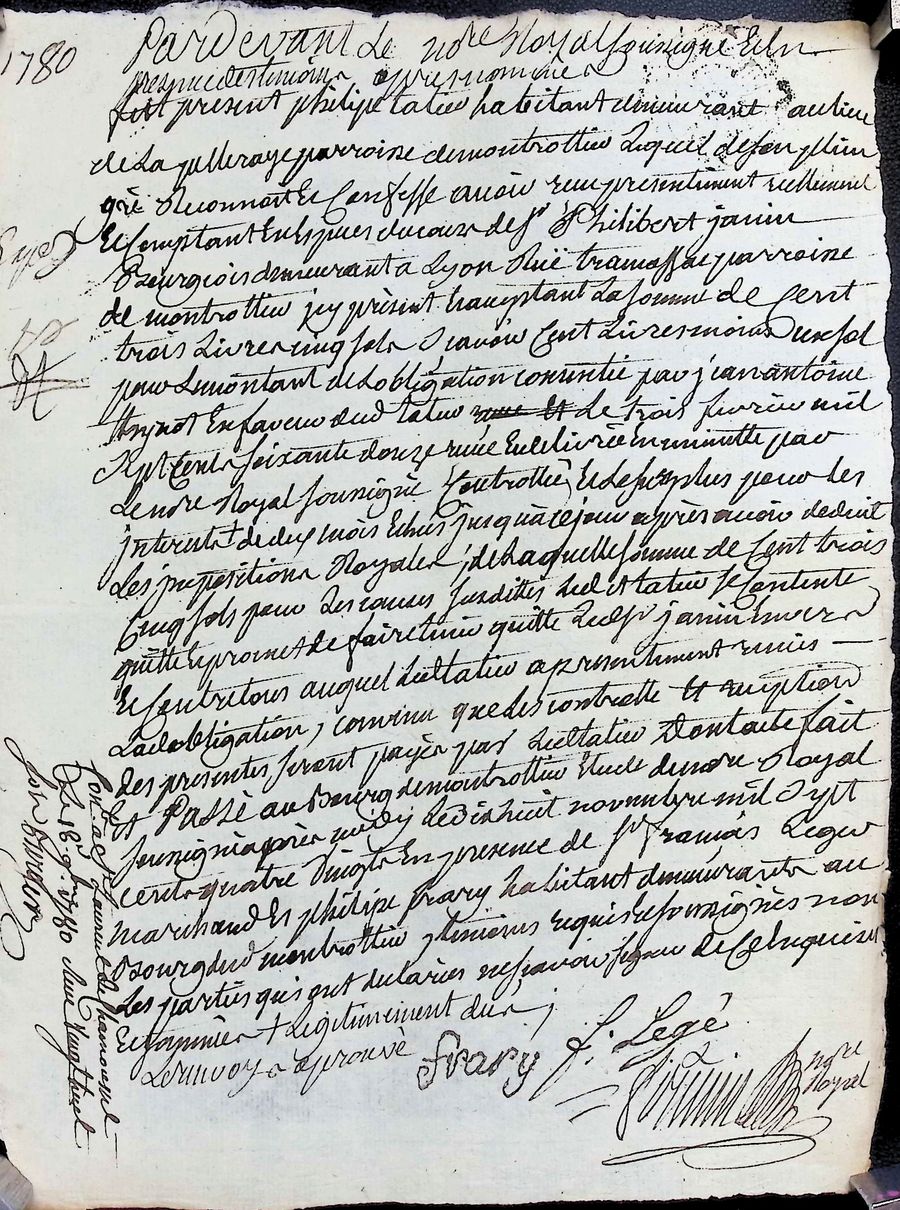 1780
Pardevant Le nore Royal soussigné Et En
presence des temoins apres nommés
fut present philipe tatieu habitant demeurant au lieu
de La parroisse de montrottieu Lequel de son plein
gré Reconnoit Et Confesse avoir reçu presentement réellement
Et Comptant En Especes du cours de sr Philibert janin
Bourgeois demeurant a Lyon Rüe tramassac parroisse
de montrottieu jcy présent Et acceptant La somme de Cent
trois Livres cinq sols Sçavoir Cent Livres moins un sol
pour Le montant de L'obligation consentie par jean antoine
En faveur dud tatieu Le trois fevrier mil
Sept Cents soixante douze reçue Et delivrée En minutte par
Le nore Royal soussigné Controllée, Et Le surplus pour Les
interets + de dix mois Echus jusqu'à ce jour après avoir deduit
Les impositions Royales, de Laquelle somme de Cent trois
Cinq sols pour Les causes susdittes Led tatieu Se Contente
quitte Et promet de faire tenir quitte Ledsr janin Envers
Et Contre tous auquel Led tatieu a presentement remis
Lad obligation, convenu que Les controlle Et
des presentes seront payés par Led tatieu Dont acte fait
Et Passé au Bourg de montrottieu Etude du nore Royal
soussigné après midy Le dix huit novembre mil Sept
cents quatre Vingts En presence de sr François Leger
marchand Et philipe frary habitant demeurants au
Bourg dud montrottieu temoins requis Et soussignés non
Les parties qui ont declarées ne sçavoir signer de Ce Enquises
Et sommées + Legitimement dus;
Le renvoy approuvé
frary f. Legé
nore
Royal
Cont. a St Laurent de Chamousset
Le 18 9bre 1780 Reçu
sols